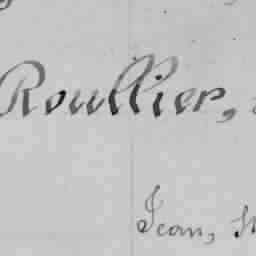 Roullier,
Jean,